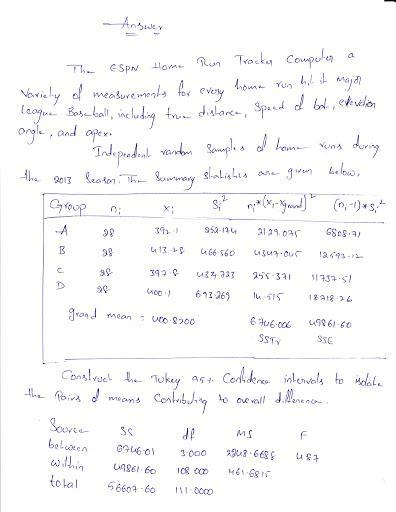 Answer
The ESPN Home Run Tracker Computer a
Variety of measurements for every home run hit it major
League Baseball, including true distance, Speed of bat, elevation
angle, and apex.
Independent random Samples of home runs during
the 2013 Season. The Summary statistics are given below,
Group ni xi Si² ni*(xi-xgrand)² (ni-1)*Si²
A 28 392.1 252.174 2129.075 6808.71
B 28 413.28 466.560 4347.045 12597.12
C 28 397.8 434.723 255.371 11737.51
D 28 400.1 693.269 14.515 18718.26
grand mean = 400.8200 6746.006 49861.60
SSTr SSE
Construct the Tukey 95% Confidence intervals to isolate
the Pairs of means Contributing to overall difference.
Source SS df MS F
between 6746.01 3.000 2248.6688 4.87
within 49861.60 108.000 461.6815
total 56607.60 111.0000